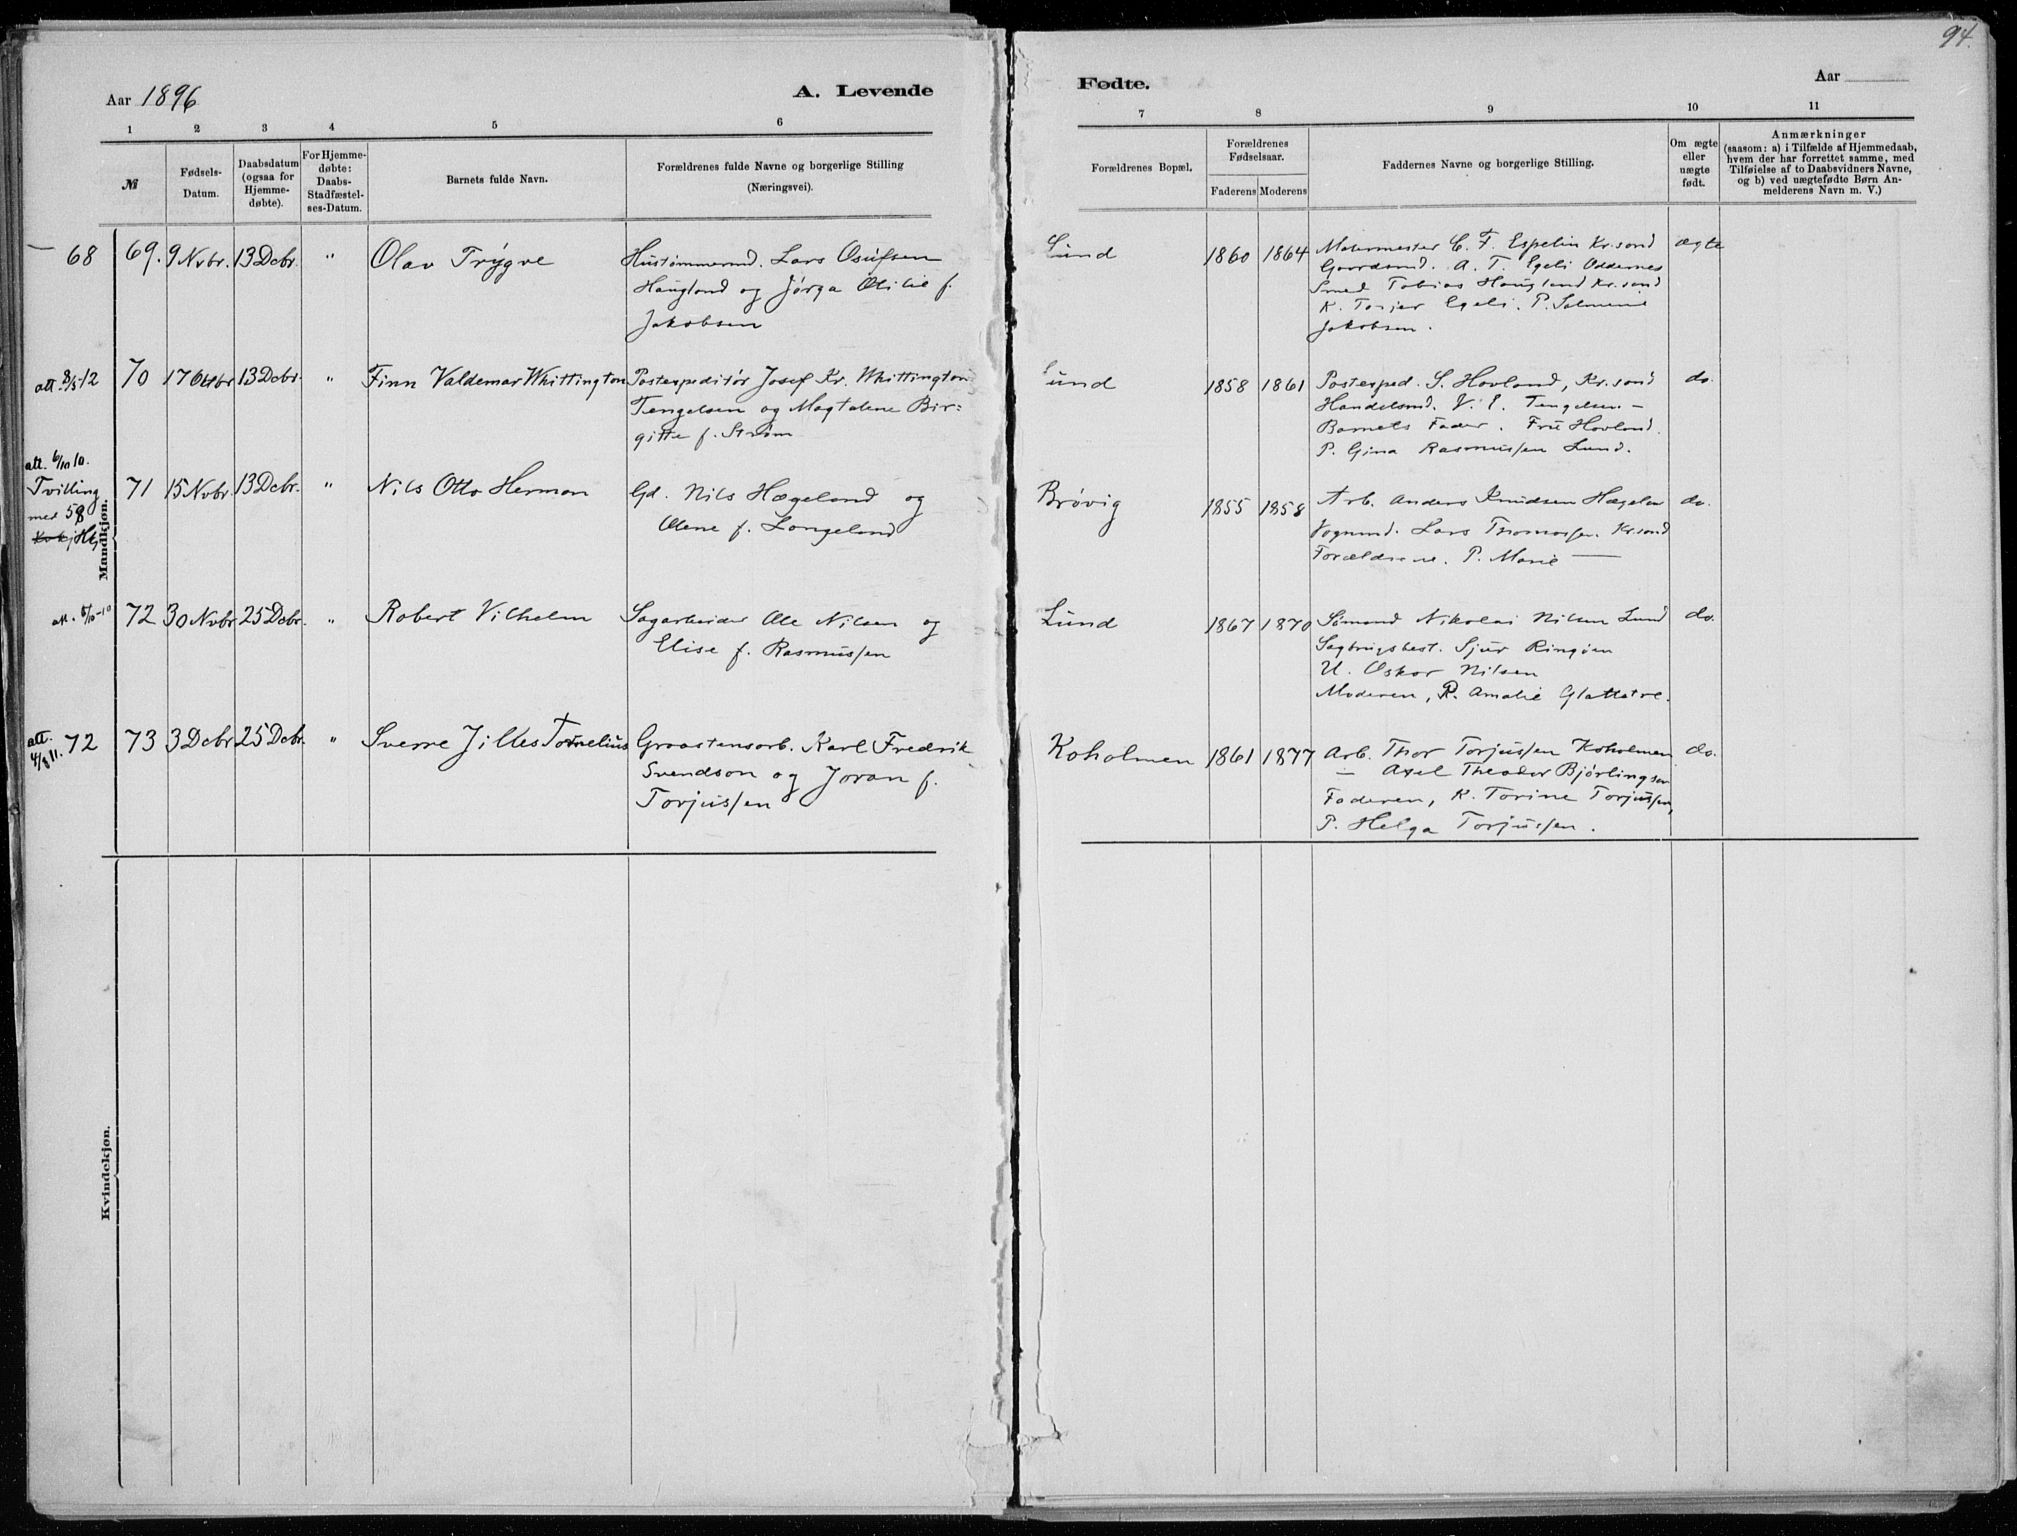 94.
Aar 1896
A. Levende
Fødte.
Aar
1 2 3 4 5 6
7 8 9 10 11
№
Fødsels-
Datum.
Daabsdatum
(ogsaa for
Hjemme-
døbte).
For Hjemme-
døbte:
Daabs-
Stadfæstel-
ses-Datum.
Barnets fulde Navn.
Forældrenes fulde Navne og borgerlige Stilling
(Næringsvei).
Forældrenes Bopæl.
Forældrenes
Fødselsaar.
Faderens Moderens
Faddernes Navne og borgerlige Stilling.
Om ægte
eller
uægte
født.
Anmærkninger
(saasom: a) i Tilfælde af Hjemmedaab,
hvem der har forrettet samme, med
Tilføielse af to Daabsvidners Navne,
og b) ved uægtefødte Børn An-
melderens Navn m. V.)
Mandkjøn.
— 68
69. 9 Nvbr. 13 Dcbr. " Olav Trygve
Hustømmermd. Lars Osufsen
Haugland og Jørga Otilie f.
Jakobsen
Lund 1860 1864
Malermester C. F. Espelin Kr.sand
Gaardsmd. A. T. Egeli Oddernes
Smed Tobias Haugland Kr.sand
K. Torjer Egeli. P. Salmine
Jakobsen.
ægte
att. 8/5-12
70 17 Oktbr 13 Dcbr. " Finn Valdemar Whittington
Postexpeditør Josef Kr. Whittington
Tengelsen og Magdalene Bir=
gitte f. Strøm
Lund 1858 1861
Postexped. S. Hovland, Kr.sand
Handelsmd. V. E. Tengelsen —
Barnets Fader. Fru Hovland.
P. Gina Rasmussen Lund.
do.
att. 6/10 10.
Tvilling
med 58
71 15 Nvbr. 13 Dcbr. " Nils Otto Herman
Gd. Nils Hægeland og
Olene f. Langeland
Brøvig 1855 1858
Arb. Anders Knudsen Hægelan
Vognmd. Lars Thomassen. Kr.sand
Forældrene. P. Marie —
do.
att. 5/10-10
72 30 Nvbr 25 Dcbr. " Robert Vilhelm
Sagarbeider Ole Nilsen og
Elise f. Rasmussen
Lund 1867 1870
Sømand Nikolai Nilsen Lund
Sagbrugsbest. Sjur Ringøen
U. Oskar Nilsen
Moderen, P. Amalie Glattetre.
do.
att. 4/8 11. 72
73 3 Dcbr 25 Dcbr. " Sverre Jilles Tornelius
Graastensarb. Karl Fredrik
Svendson og Joran f.
Torjussen
Koholmen 1861 1877
Arb. Thor Torjussen Koholmen
— Axel Theodor Bjørlingson
Faderen, K. Torine Torjussen,
P. Helga Torjussen.
do.
Kvindekjøn.